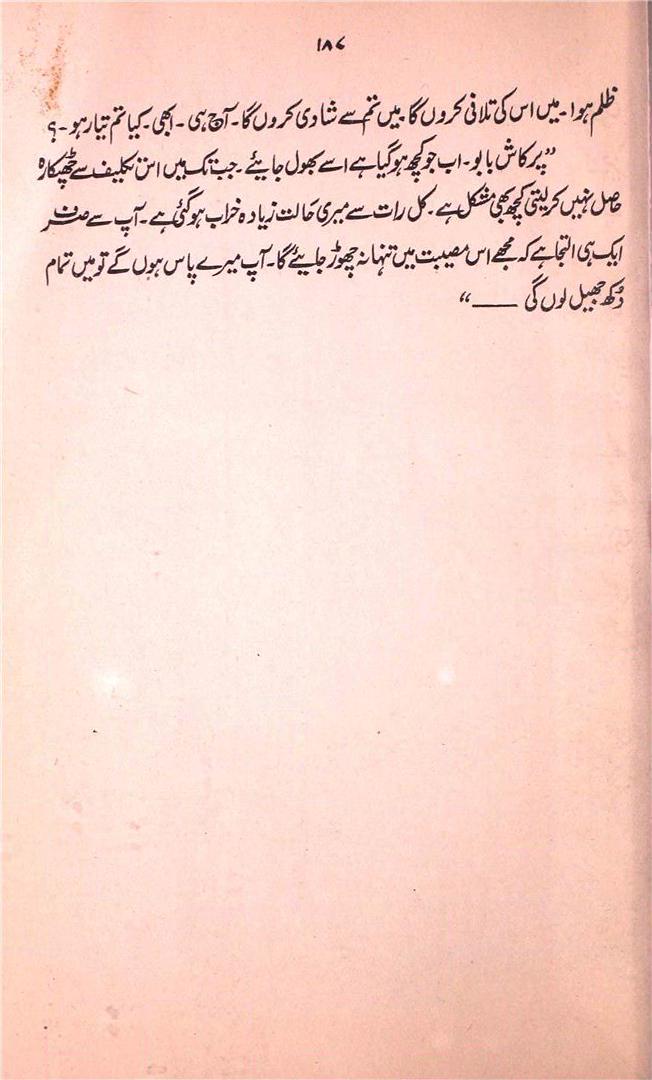 ۱۸۷
ظلم ہوا۔ میں اس کی تلافی کروں گا۔ میں تم سے شادی کروں گا۔ آج ہی۔ ابھی۔ کیا تم تیار ہو۔؟
”پرکاش بابو۔ اب جو کچھ ہو گیا ہے اسے بھول جایئے۔ جب تک میں اس تکلیف سے چھٹکارہ
حاصل نہیں کر لیتی کچھ بھی مشکل ہے۔ کل رات سے میری حالت زیادہ خراب ہو گئی ہے۔ آپ سے صرف
ایک ہی التجا ہے کہ مجھے اس مصیبت میں تنہا نہ چھوڑ جایئے گا۔ آپ میرے پاس ہوں گے تو میں تمام
دُکھ جھیل لوں گی ——“